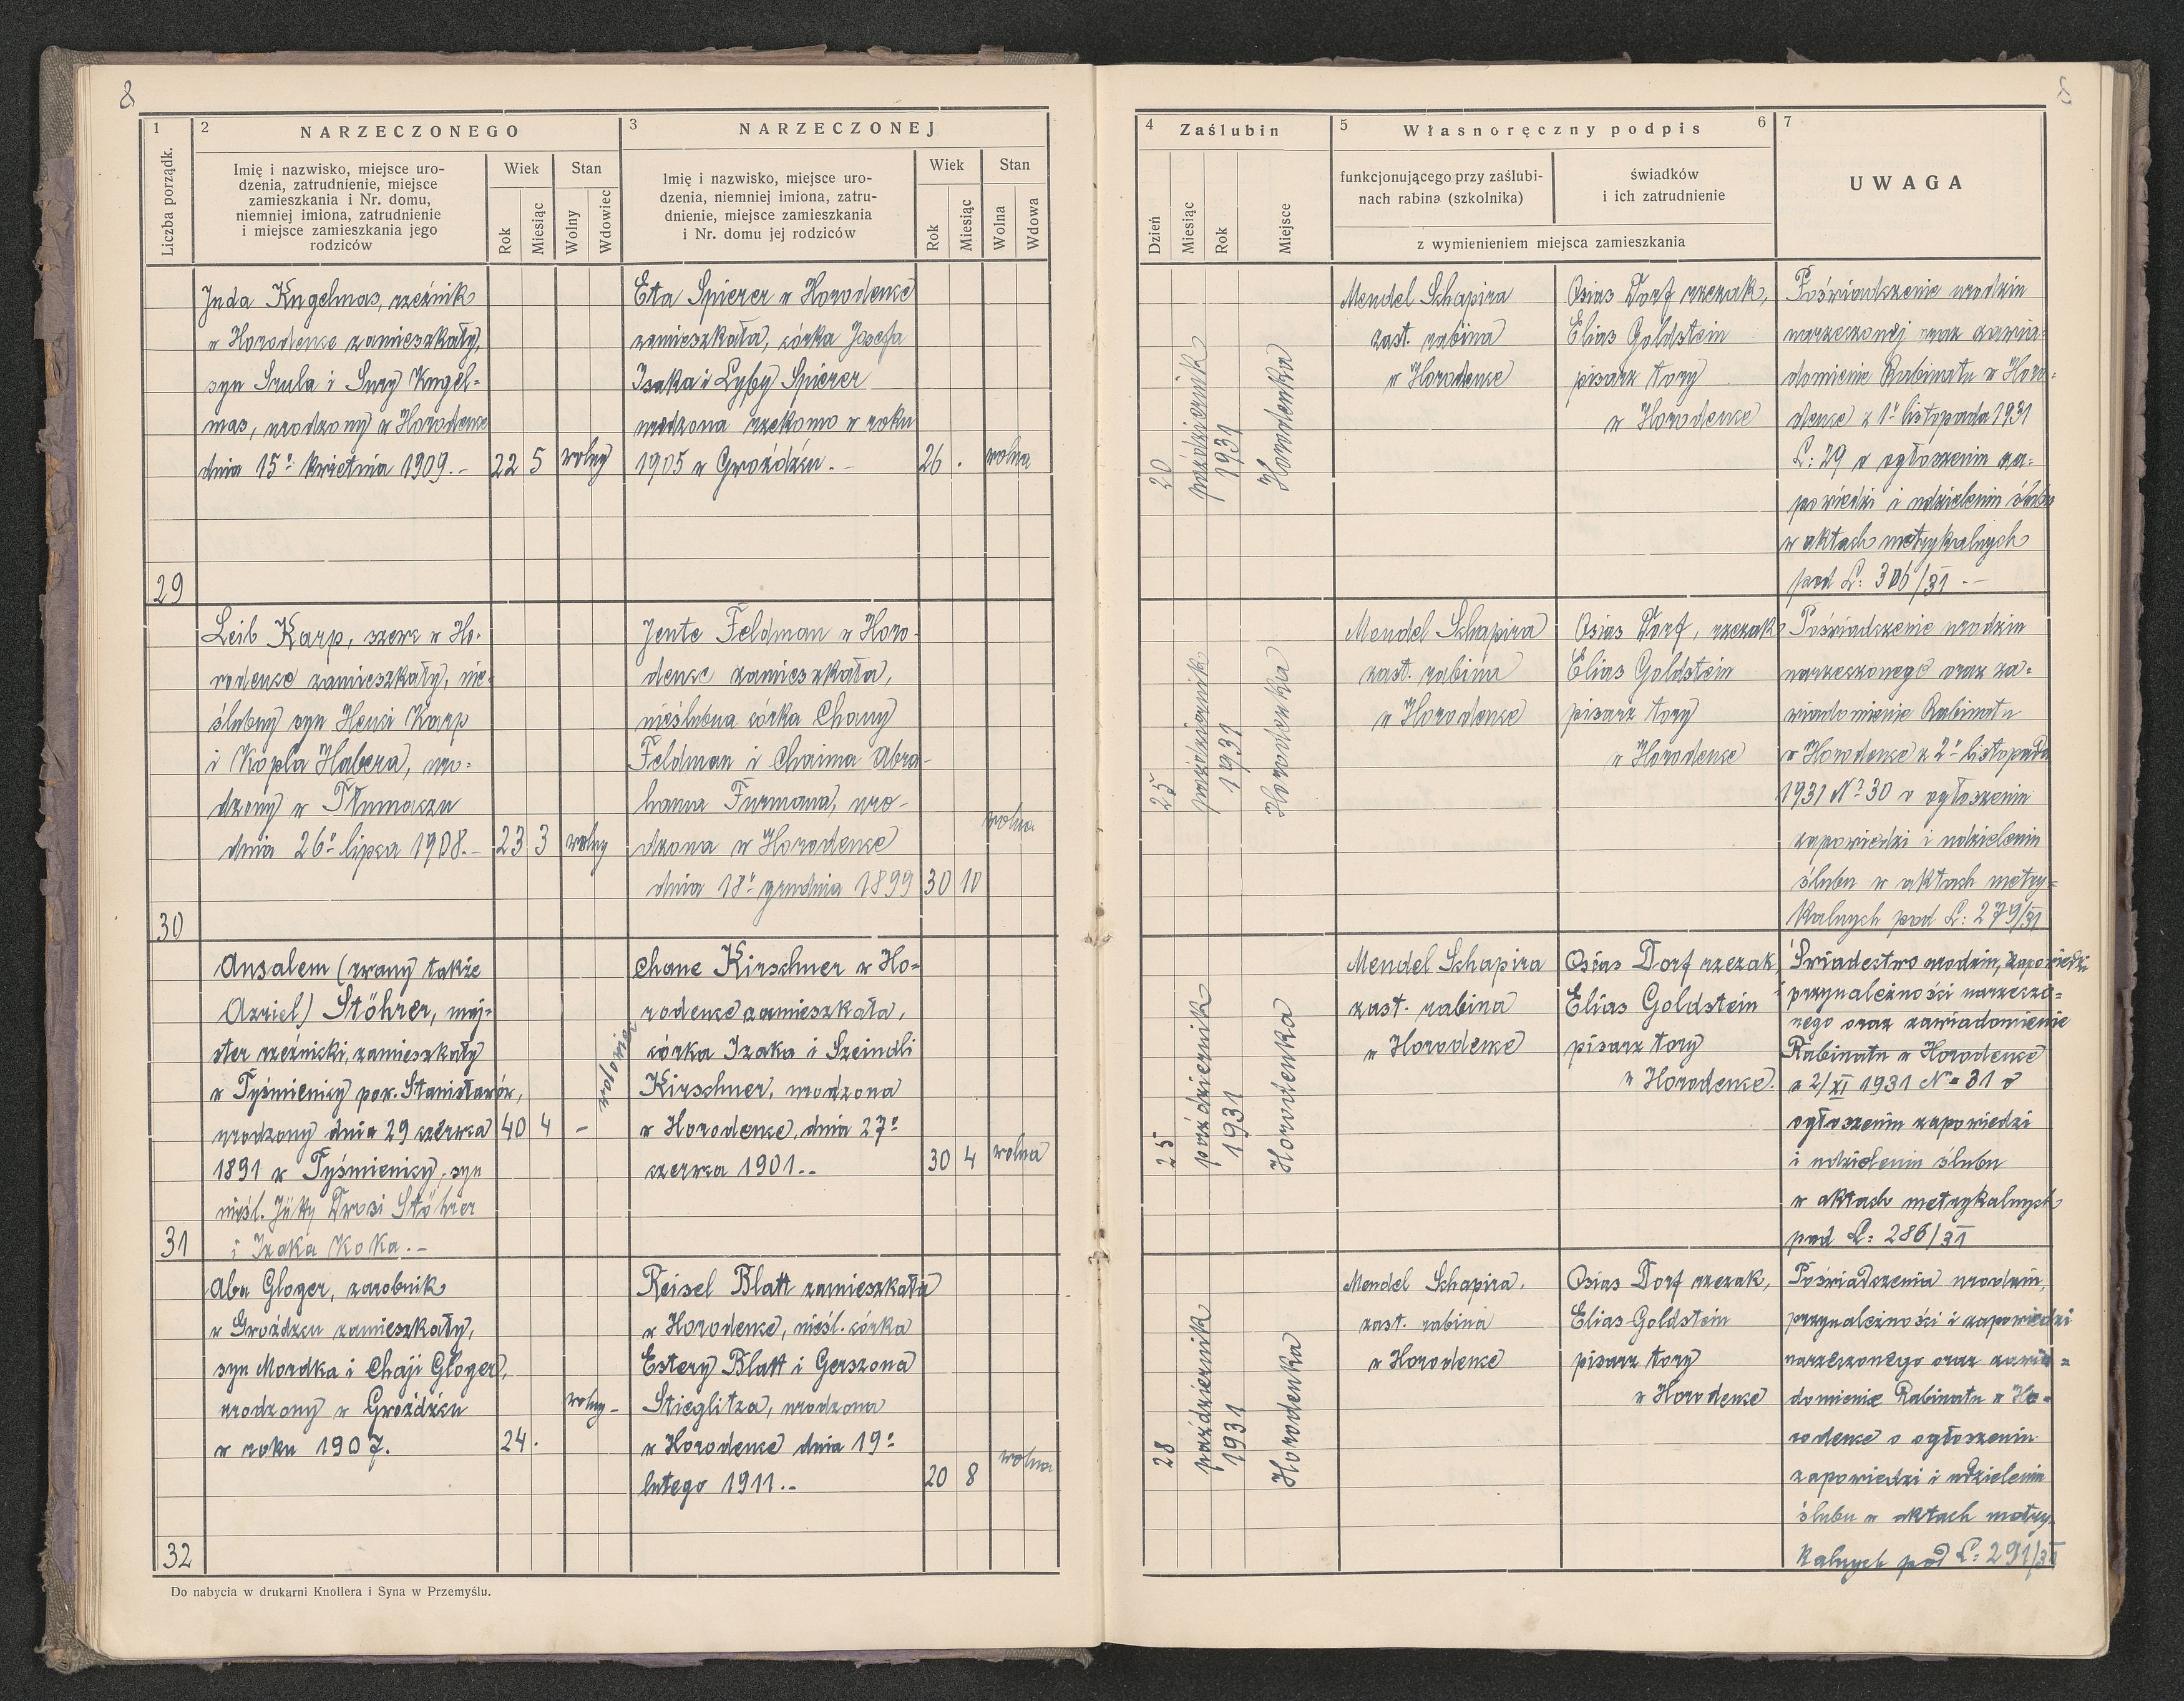 8
8
1
2
NARZECZONEGO
3
NARZECZONEJ
Liczba porządk.
Imię i nazwisko, miejsce uro-
dzenia, zatrudnienie, miejsce
zamieszkania i Nr. domu,
niemniej imiona, zatrudnienie
i miejsce zamieszkania jego
rodziców
Wiek
Rok
Miesiąc
Stan
Wolny
Wdowiec
Imię i nazwisko, miejsce uro-
dzenia, niemniej imiona, zatru-
dnienie, miejsce zamieszkania
i Nr. domu jej rodziców
Wiek
Rok
Miesiąc
Stan
Wolna
Wdowa
4
Zaślubin
5
Własnoręczny podpis
6
7
Dzień
Miesiąc
Rok
Miejsce
funkcjonującego przy zaślubi-
nach rabina (szkolnika)
świadków
i ich zatrudnienie
z wymienieniem miejsca zamieszkania
UWAGA
29
Juda Kugelmas, rzeźnik
w Horodence zamieszkały,
syn Srula i Sury Kugel=
mas, urodzony w Horodence
dnia 15º kwietnia 1909.-
22
5
wolny
Eta Spierer w Horodence
zamieszkała, córka Josefa
Izaka i Lyby Spierer
urodzona rzekomo w roku
1905 w Gwoźdźcu.-
26
.
wolna
20
październik
1931
Horodenka
Mendel Schapira
zast. rabina
w Horodence
Osias Dorf rzezak,
Elias Goldstein
pisarz tory
w Horodence
Poświadczenie urodzin
narzeczonej oraz zawia=
domienie Rabinatu w Horo=
dence z 1º listopada 1931
L: 29 o ogłoszeniu za=
powiedzi i udzieleniu ślubu
w aktach metrykalnych
pod L: 306/31.-
30
Leib Karp, szewc w Ho-
rodence zamieszkały, nie-
ślubny syn Henci Karp
i Kopla Habera, uro-
dzony w Tłumaczu
dnia 26º lipca 1908.-
23
3
wolny
Jente Feldman w Horo-
dence zamieszkała,
nieślubna córka Chany
Feldman i Chaima Abra-
hama Furmana, uro-
dzona w Horodence
dnia 18º grudnia 1899
30
10
wolna
25
październik
1931
Horodenka
Mendel Schapira
zast. rabina
w Horodence
Osias Dorf, rzezak
Elias Goldstein
pisarz tory
w Horodence
Poświadczenie urodzin
narzeczonego oraz za=
wiadomienie Rabinatu
w Horodence z 2º listopada
1931 Nº 30 o ogłoszeniu
zapowiedzi i udzieleniu
ślubu w aktach metry=
kalnych pod L: 279/31
31
Ansalem (zwany także
Azriel) Stöhrer, maj-
ster rzeźnicki, zamieszkały
w Tyśmienicy pow. Stanisławów,
urodzony dnia 29 czerwca
1891 w Tyśmienicy, syn
nieśl. Jütty Drosi Stöhrer
i Izaka Koka.-
40
4
-
Chane Kirschner w Ho-
rodence zamieszkała,
córka Izaka i Szeindli
Kirschner, urodzona
w Horodence, dnia 27º
czerwca 1901.-
30
4
wolna
25
październik
1931
Horodenka
Mendel Schapira
zast. rabina
w Horodence
Osias Dorf rzezak,
Elias Goldstein
pisarz tory
w Horodence.
Świadectwo urodzin, zapowiedzi
przynależności narzeczo=
nego oraz zawiadomienie
Rabinatu w Horodence
z 2/XI 1931 Nº 31 o
ogłoszeniu zapowiedzi
i udzieleniu ślubu
w aktach metrykalnych
pod L: 286/31
32
Aba Gloger, zarobnik
w Gwoźdźcu zamieszkały,
syn Mordka i Chaji Gloger,
urodzony w Gwoźdźcu
w roku 1907.
24
.
wolny-
Reisel Blatt zamieszkała
w Horodence, nieśl. córka
Estery Blatt i Gerszona
Stieglitza, urodzona
w Horodence dnia 19º
lutego 1911.-
20
8
wolna
28
październik
1931
Horodenka
Mendel Schapira,
zast. rabina
w Horodence
Osias Dorf rzezak,
Elias Goldstein
pisarz tory
w Horodence
Poświadczenia urodzin,
przynależności i zapowiedzi
narzeczonego oraz zawia=
domienie Rabinatu w Ho-
rodence o ogłoszeniu
zapowiedzi i udzieleniu
ślubu w aktach metry-
kalnych pod L: 291/31
Do nabycia w drukarni Knollera i Syna w Przemyślu.